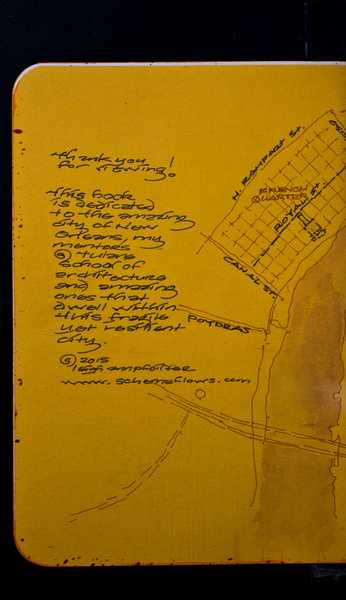 thank you
for viewing!
this book
is dedicated
to the amazing
city of New
Orleans, my
mentors
@ tulane
school of
architecture
and amazing
ones that
dwell within
this fragile
yet resilient
city.
© 2015
www.schemeflows.com
N. RAMPART St.
FRENCH
QUARTER
ROYAL St.
CANAL St.
POYDRAS